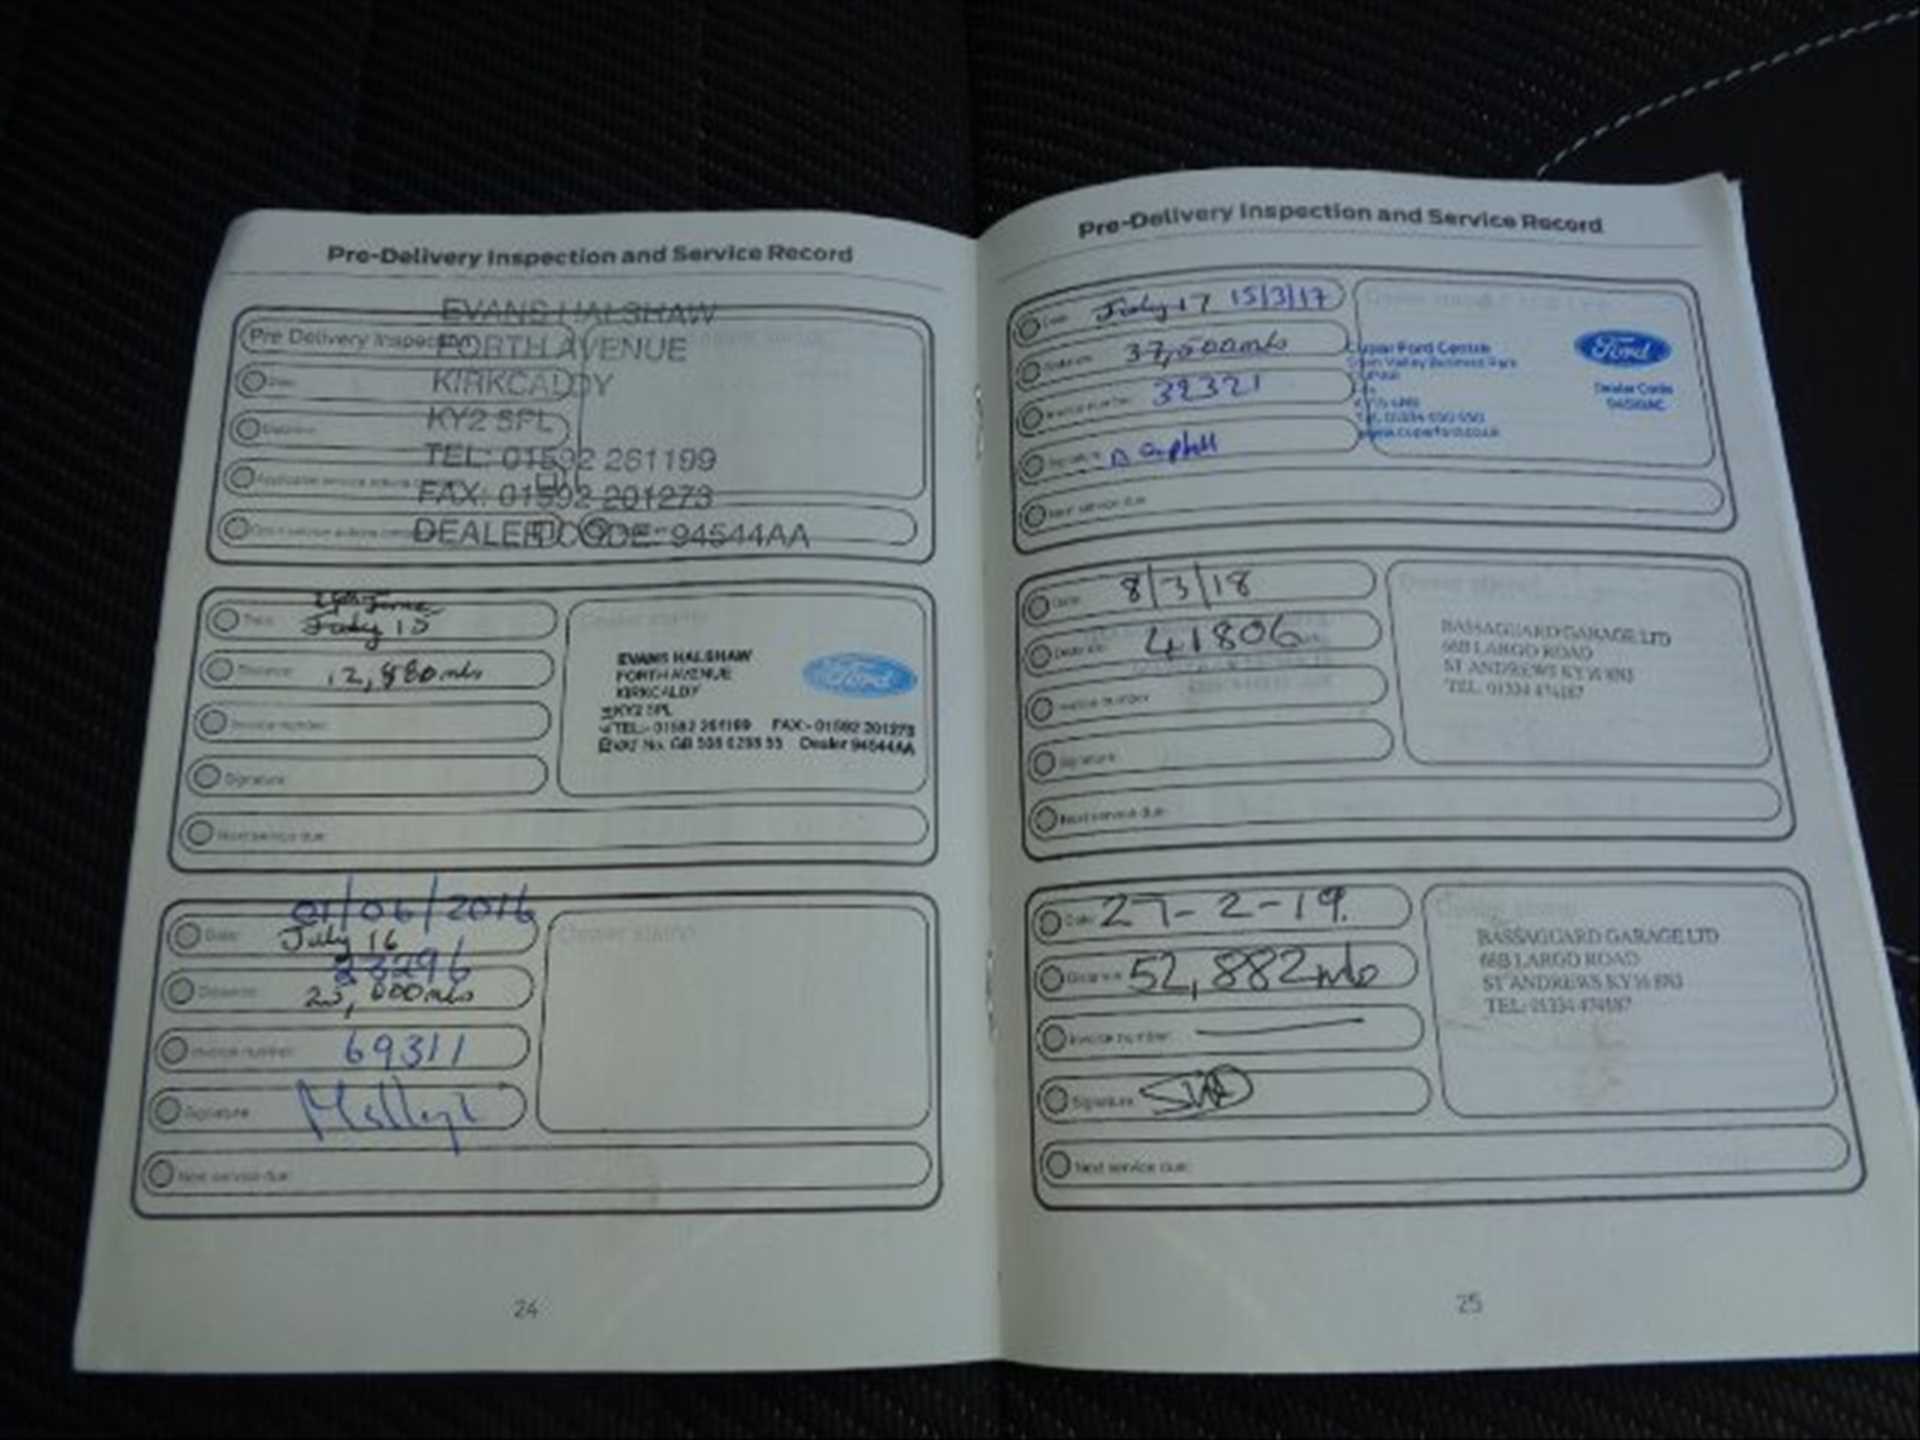 Pre-Delivery Inspection and Service Record
EVANS HALSHAW
Pre Delivery Inspection
FORTH AVENUE
KIRKCALDY
Date:
KY2 5PL
Distance:
TEL: 01592 261199
FAX: 01592 201273
DEALER CODE: 94544AA
July 15
Date:
Distance: 12,880mls
Invoice number:
Signature:
Next service due:
Dealer stamp
EVANS HALSHAW
FORTH AVENUE
KIRKCALDY
KY2 5PL
TEL:- 01592 261199 FAX:- 01592 201273
VAT No. GB Dealer 94544AA
Ford
01/06/2016
Date: July 16
23296
Distance: 25,000mls
Invoice number: 69311
Signature:
Next service due:
Dealer stamp
24
Pre-Delivery Inspection and Service Record
Date: July 17 15/3/17
Distance: 37,500mls
Invoice number: 32321
Signature:
Next service due:
Cupar Ford Centre
Ford
Dealer Code
www.cuparford.co.uk
Date: 8/3/18
Distance: 41806
Invoice number:
Signature:
Next service due:
Dealer stamp
BASSAGUARD GARAGE LTD
66B LARGO ROAD
ST ANDREWS KY16 8NJ
TEL: 01334 474187
Date: 27-2-19.
Distance: 52,882mls
Invoice number:
Signature:
Next service due:
Dealer stamp
BASSAGUARD GARAGE LTD
66B LARGO ROAD
ST ANDREWS KY16 8NJ
TEL: 01334 474187
25